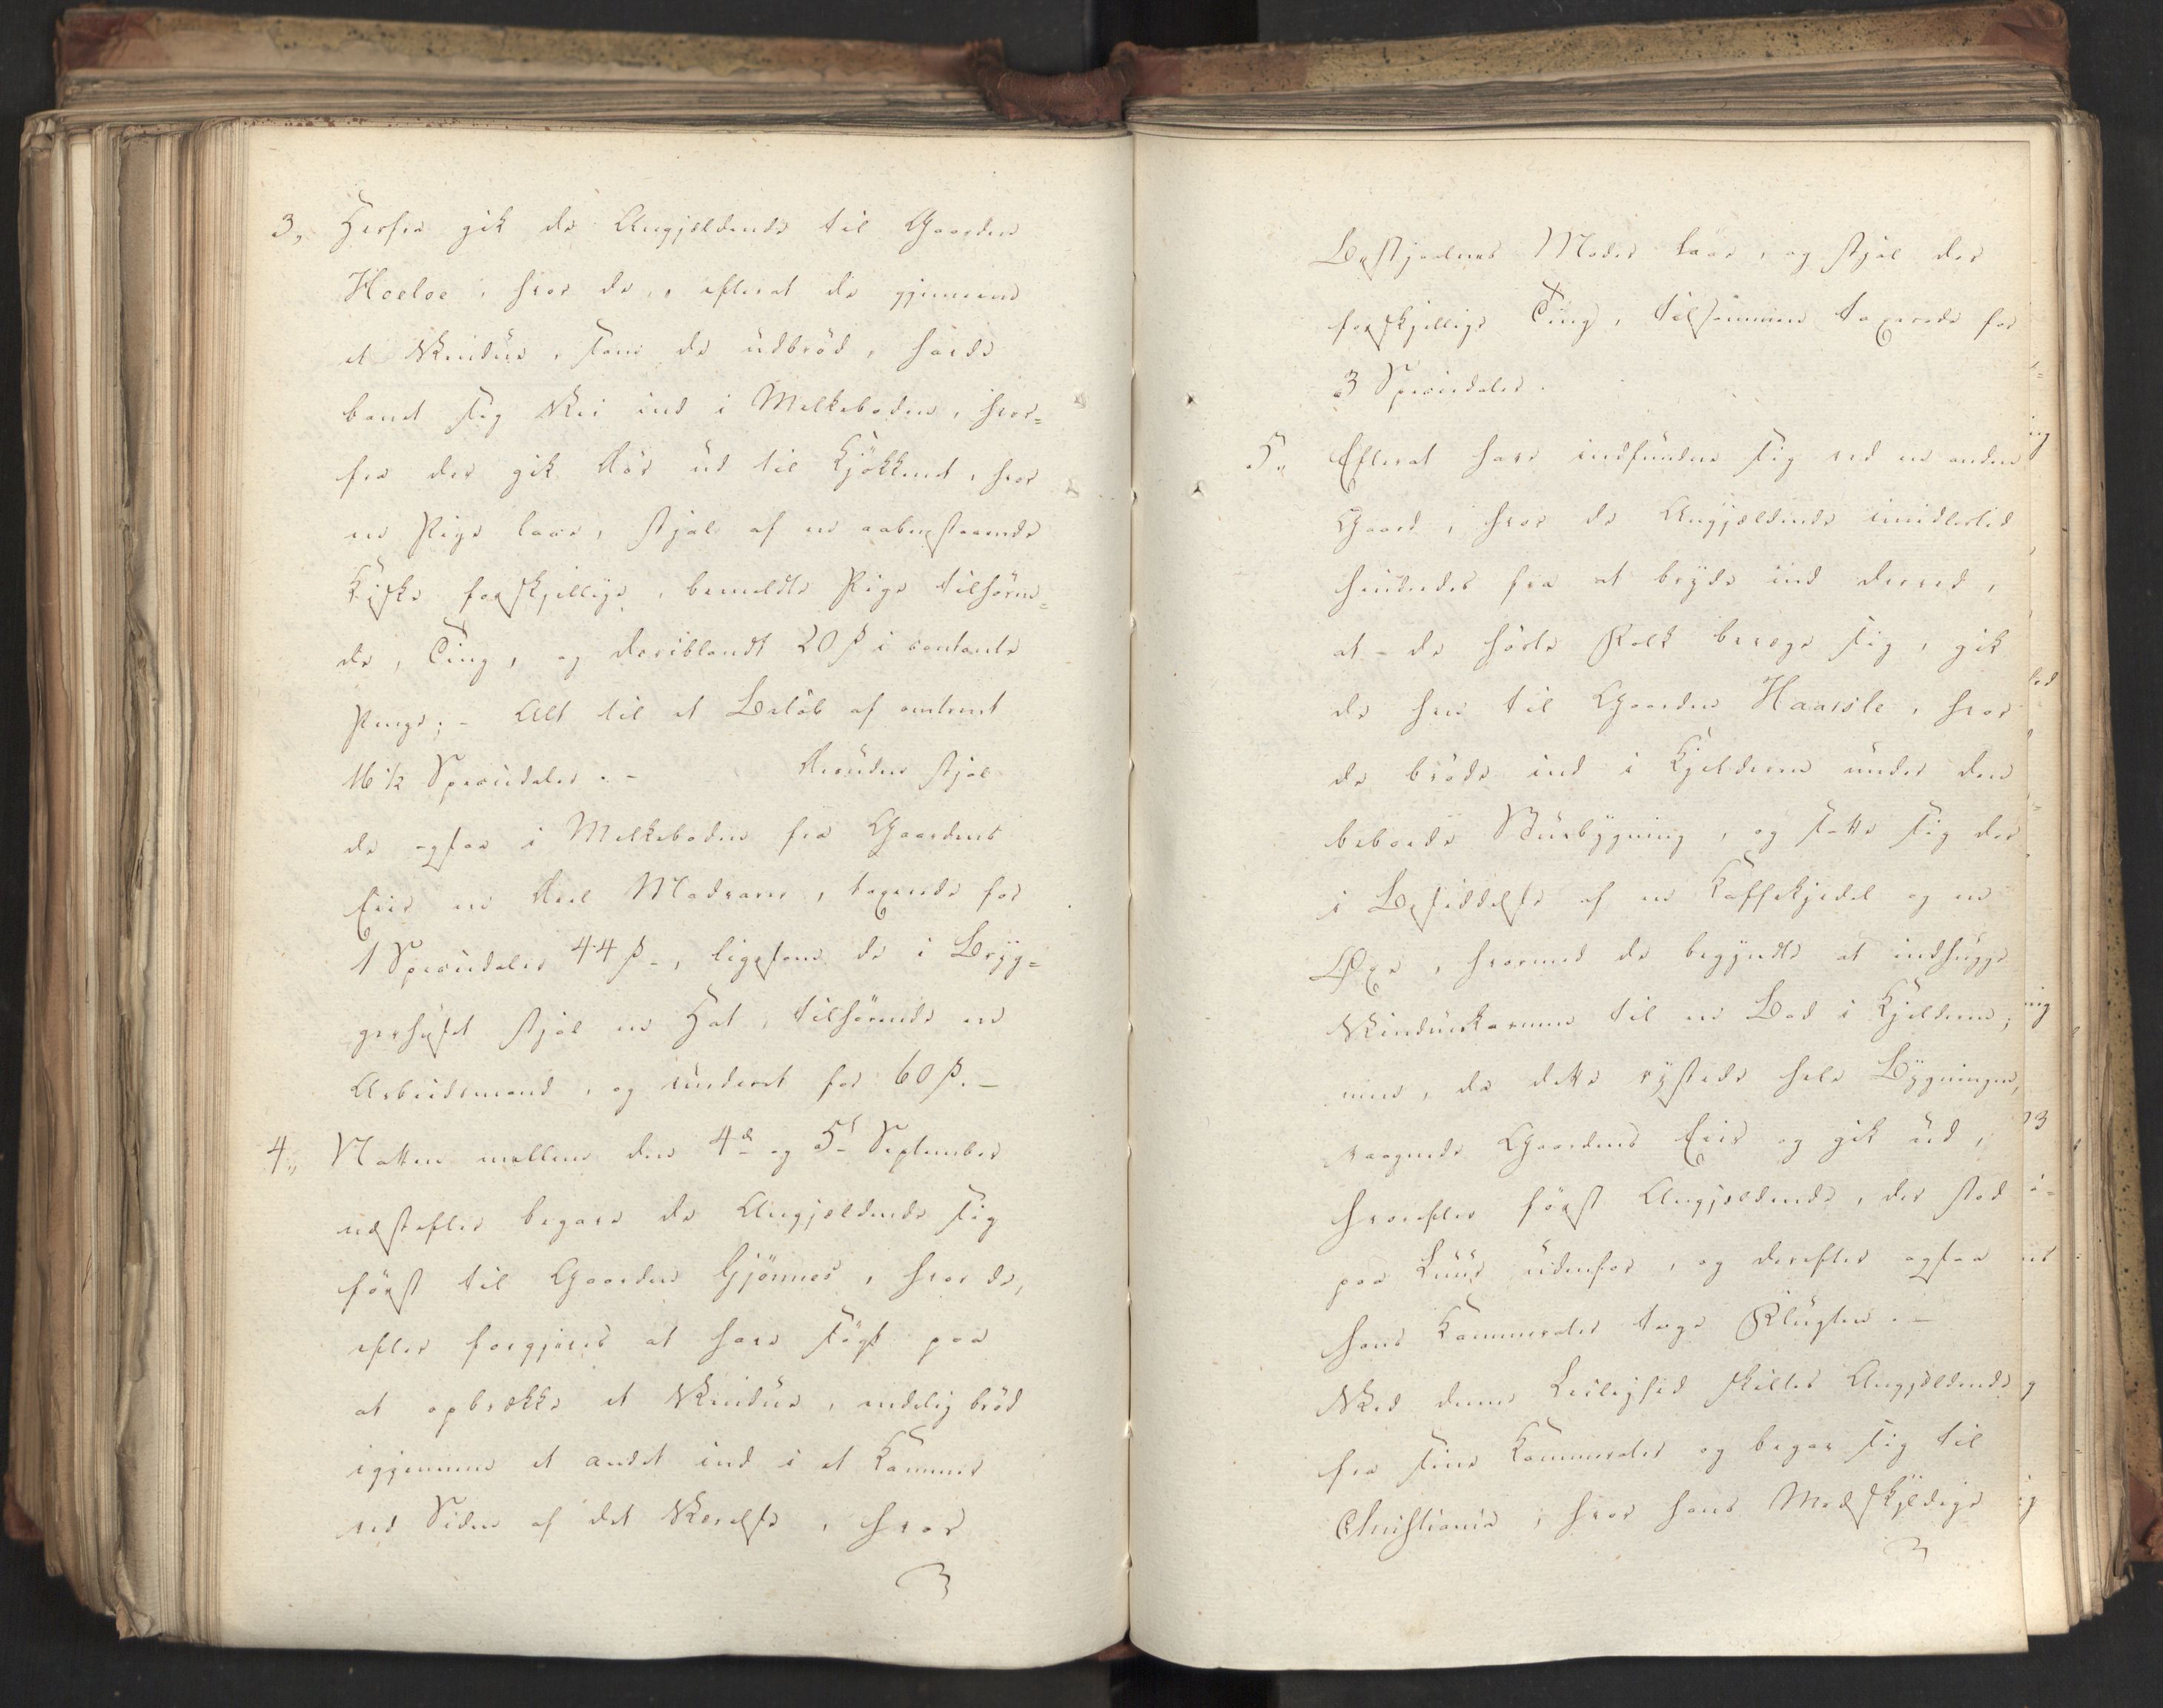 3, Herfra gik de Angjældende til Gaarden
Hoeloe, hvor de, efterat de gjennem
et Vindue, som de udbröd, havde
banet sig Vei ind i Melkeboden, hvor=
fra der gik Dör ud til Kjökkenet, hvor
en Pige laae, stjal af en aabenstaaende
Kiste forskjellige, bemeldte Pige tilhören=
de, Ting, og deriblandt 20 ß i contante
Penge; - Alt til et Belöb af omtrent
16 1/2 Speciedaler. - Desuden stjal
de ogsaa i Melkeboden fra Gaardens
Eier en Deel Madvarer, taxerede for
1 Speciedaler 44 ß -, ligesom de i Bryg=
gerhuset stjal en Hat, tilhörende en
Arbeidsmand, og vurderet for 60 ß. -
4, Natten mellem den 4de og 5te September
næstefter begave de Angjældende sig
först til Gaarden Gjönnes, hvor de,
efter forgjæves at have sögt paa
at opbrække et Vindue, endelig bröd
igjennem et andet ind i et Kammer
ved Siden af det Værelse, hvor
Bestjaalnes Moder laae, og stjal der
forskjellige Ting, tilsammen taxerede for
3 Speciedaler.
5, Efterat have indfunden sig ved en anden
Gaard, hvor de Angjældende imidlertid
hindredes fra at bryde ind derved,
at de hörte Folk bevæge sig, gik
de hen til Gaarden Haarsle, hvor
de bröde ind i Kjelderen under den
beboede Vuusbygning, og satte sig der
i Besiddelse af en Kaffekjedel og en
Öxe, hvormed de begyndte at indhugge
Vindueskarmen til en Bod i Kjelderen;
men, da dette rystede hele Bygningen,
vaagnede Gaardens Eier og gik ud,
hvorefter först Angjældende, der stod
paa Luur udenfor, og derefter ogsaa
hans Kammerater toge Flugten. -
Ved denne Leilighed skiltes Angjældende
fra sine Kammerater og begav sig til
Christiania, hvor hans Medskyldige